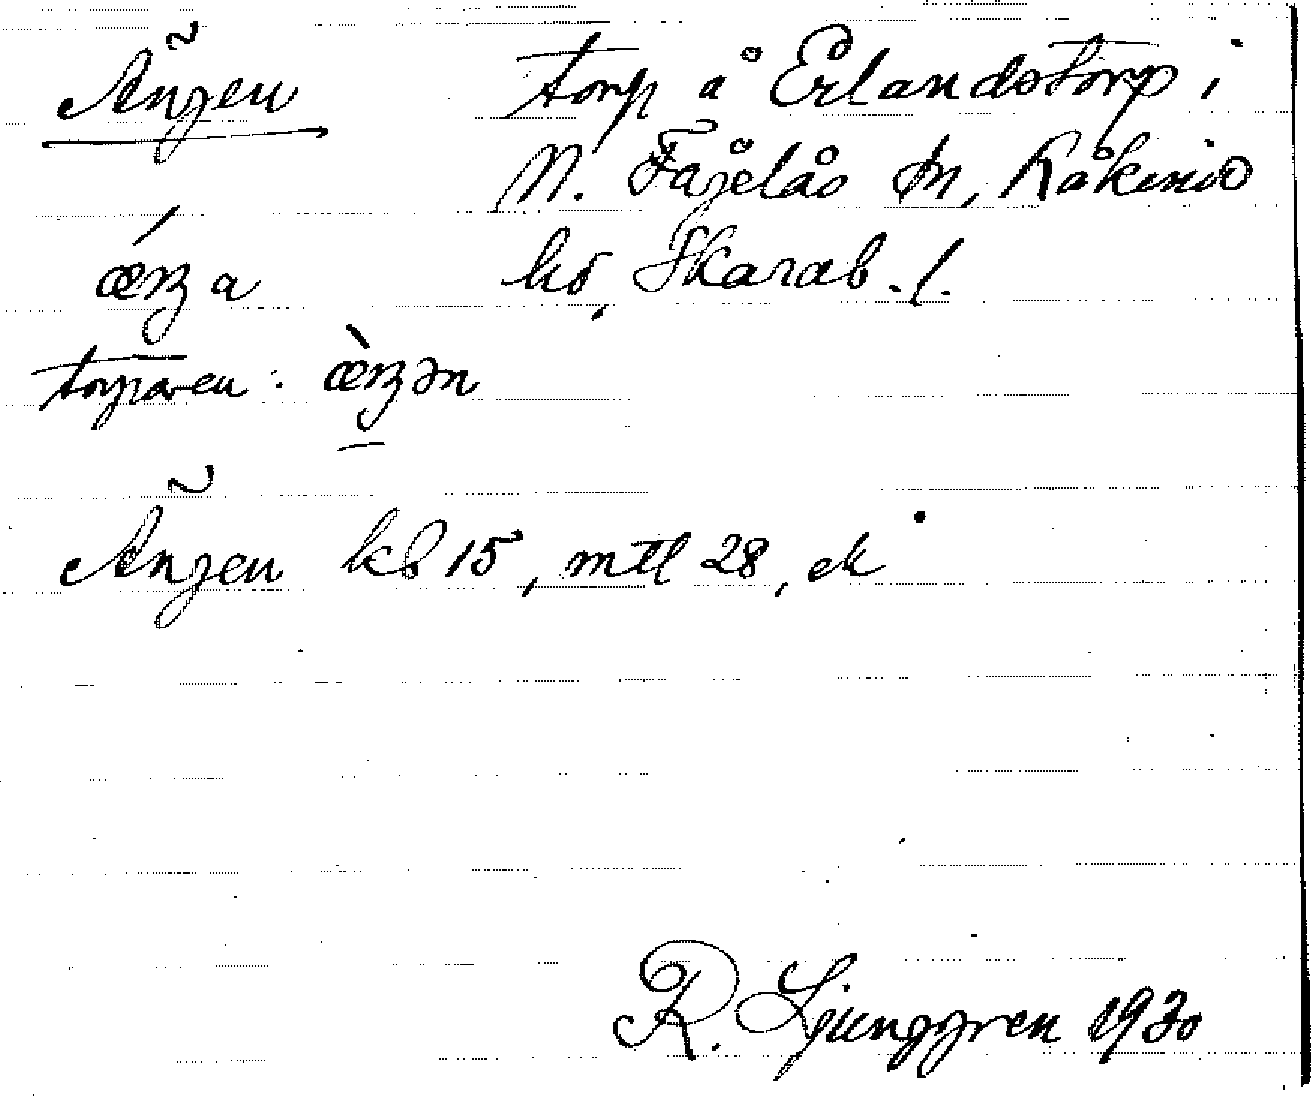 Ängen
torp å Erlandstorp i
N. Fågelås sn, Kåkinds
hd, Skarab. l.
torparen:
Ängen kb 15, mtl 28, ek
R. Ljunggren 1930